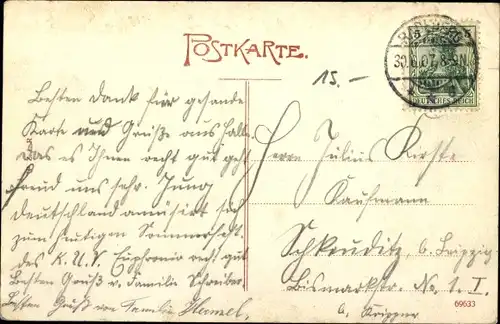 POSTKARTE.
5 5
30.6.07. 8-9N.
DEUTSCHES REICH
15.-
Besten Dank für gesandte
Karte und Grüße aus Halle
Das es Ihnen recht gut geht
freud uns sehr. Jung
Deutschland amüsirt sich
zum heutigen Sommerfest
des K.U.V. Euphronia recht gut
Besten Gruß v. Familie Schreiber
Besten Gruß von Familie Hensel
Herrn Julius Kirste
Kaufmann
Schkeuditz b. Leipzig
Bismarckstr. No. 1. I.
b. Krippner
69633